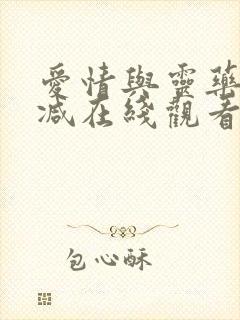 愛情與靈藥
减在綫觀看
包心酥